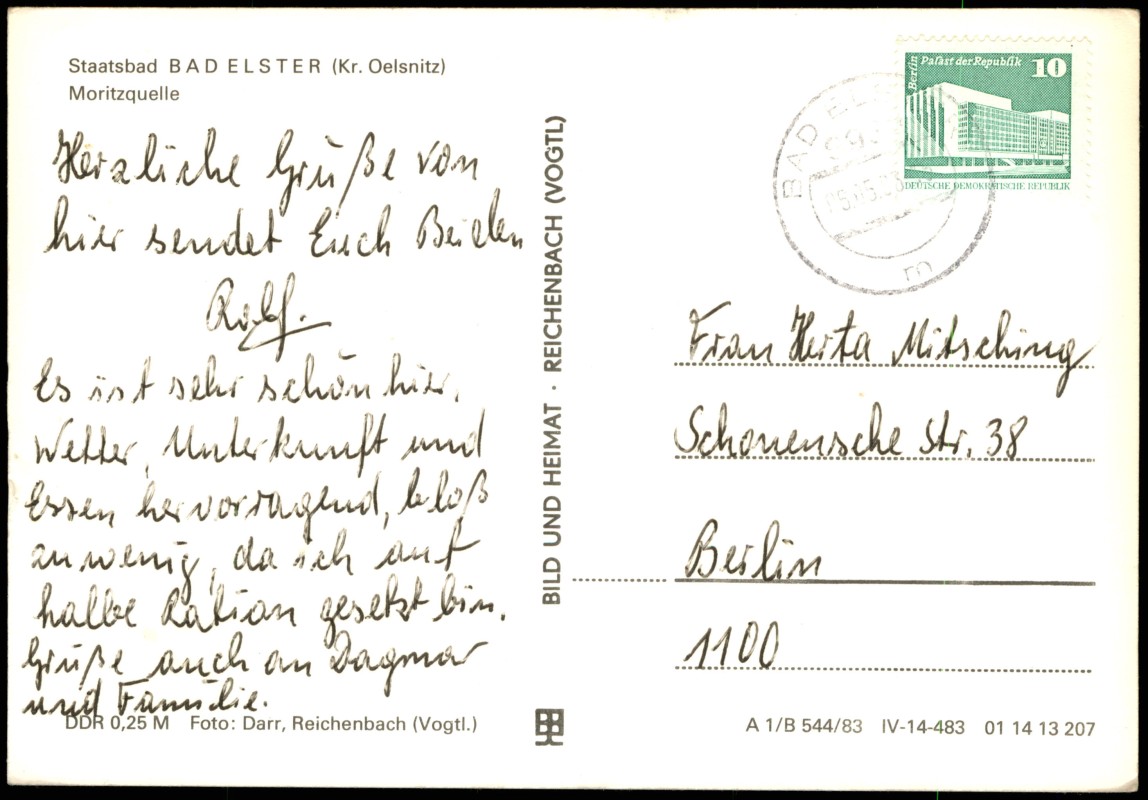 Staatsbad BAD ELSTER (Kr. Oelsnitz)
Moritzquelle
Herzliche Grüße von
hier sendet Euch Beiden
Rolf.
Es ist sehr schön hier,
Wetter, Unterkunft und
Essen hervorragend, bloß
zu wenig, da ich auf
halbe Ration gesetzt bin.
Grüße auch an Dagmar
und Familie.
DDR 0,25 M Foto: Darr, Reichenbach (Vogtl.)
BILD UND HEIMAT · REICHENBACH (VOGTL)
Berlin
Palast der Republik 10
DEUTSCHE DEMOKRATISCHE REPUBLIK
BAD
m
Frau Herta Mitsching
Schonensche Str. 38
Berlin
1100
A 1/B 544/83 IV-14-483 01 14 13 207